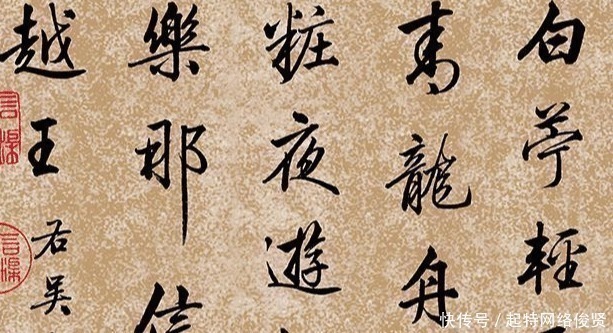 白苧輕
青龍舟
粧夜遊
樂那信
越王
右吳
快传号／起特网络俊贤